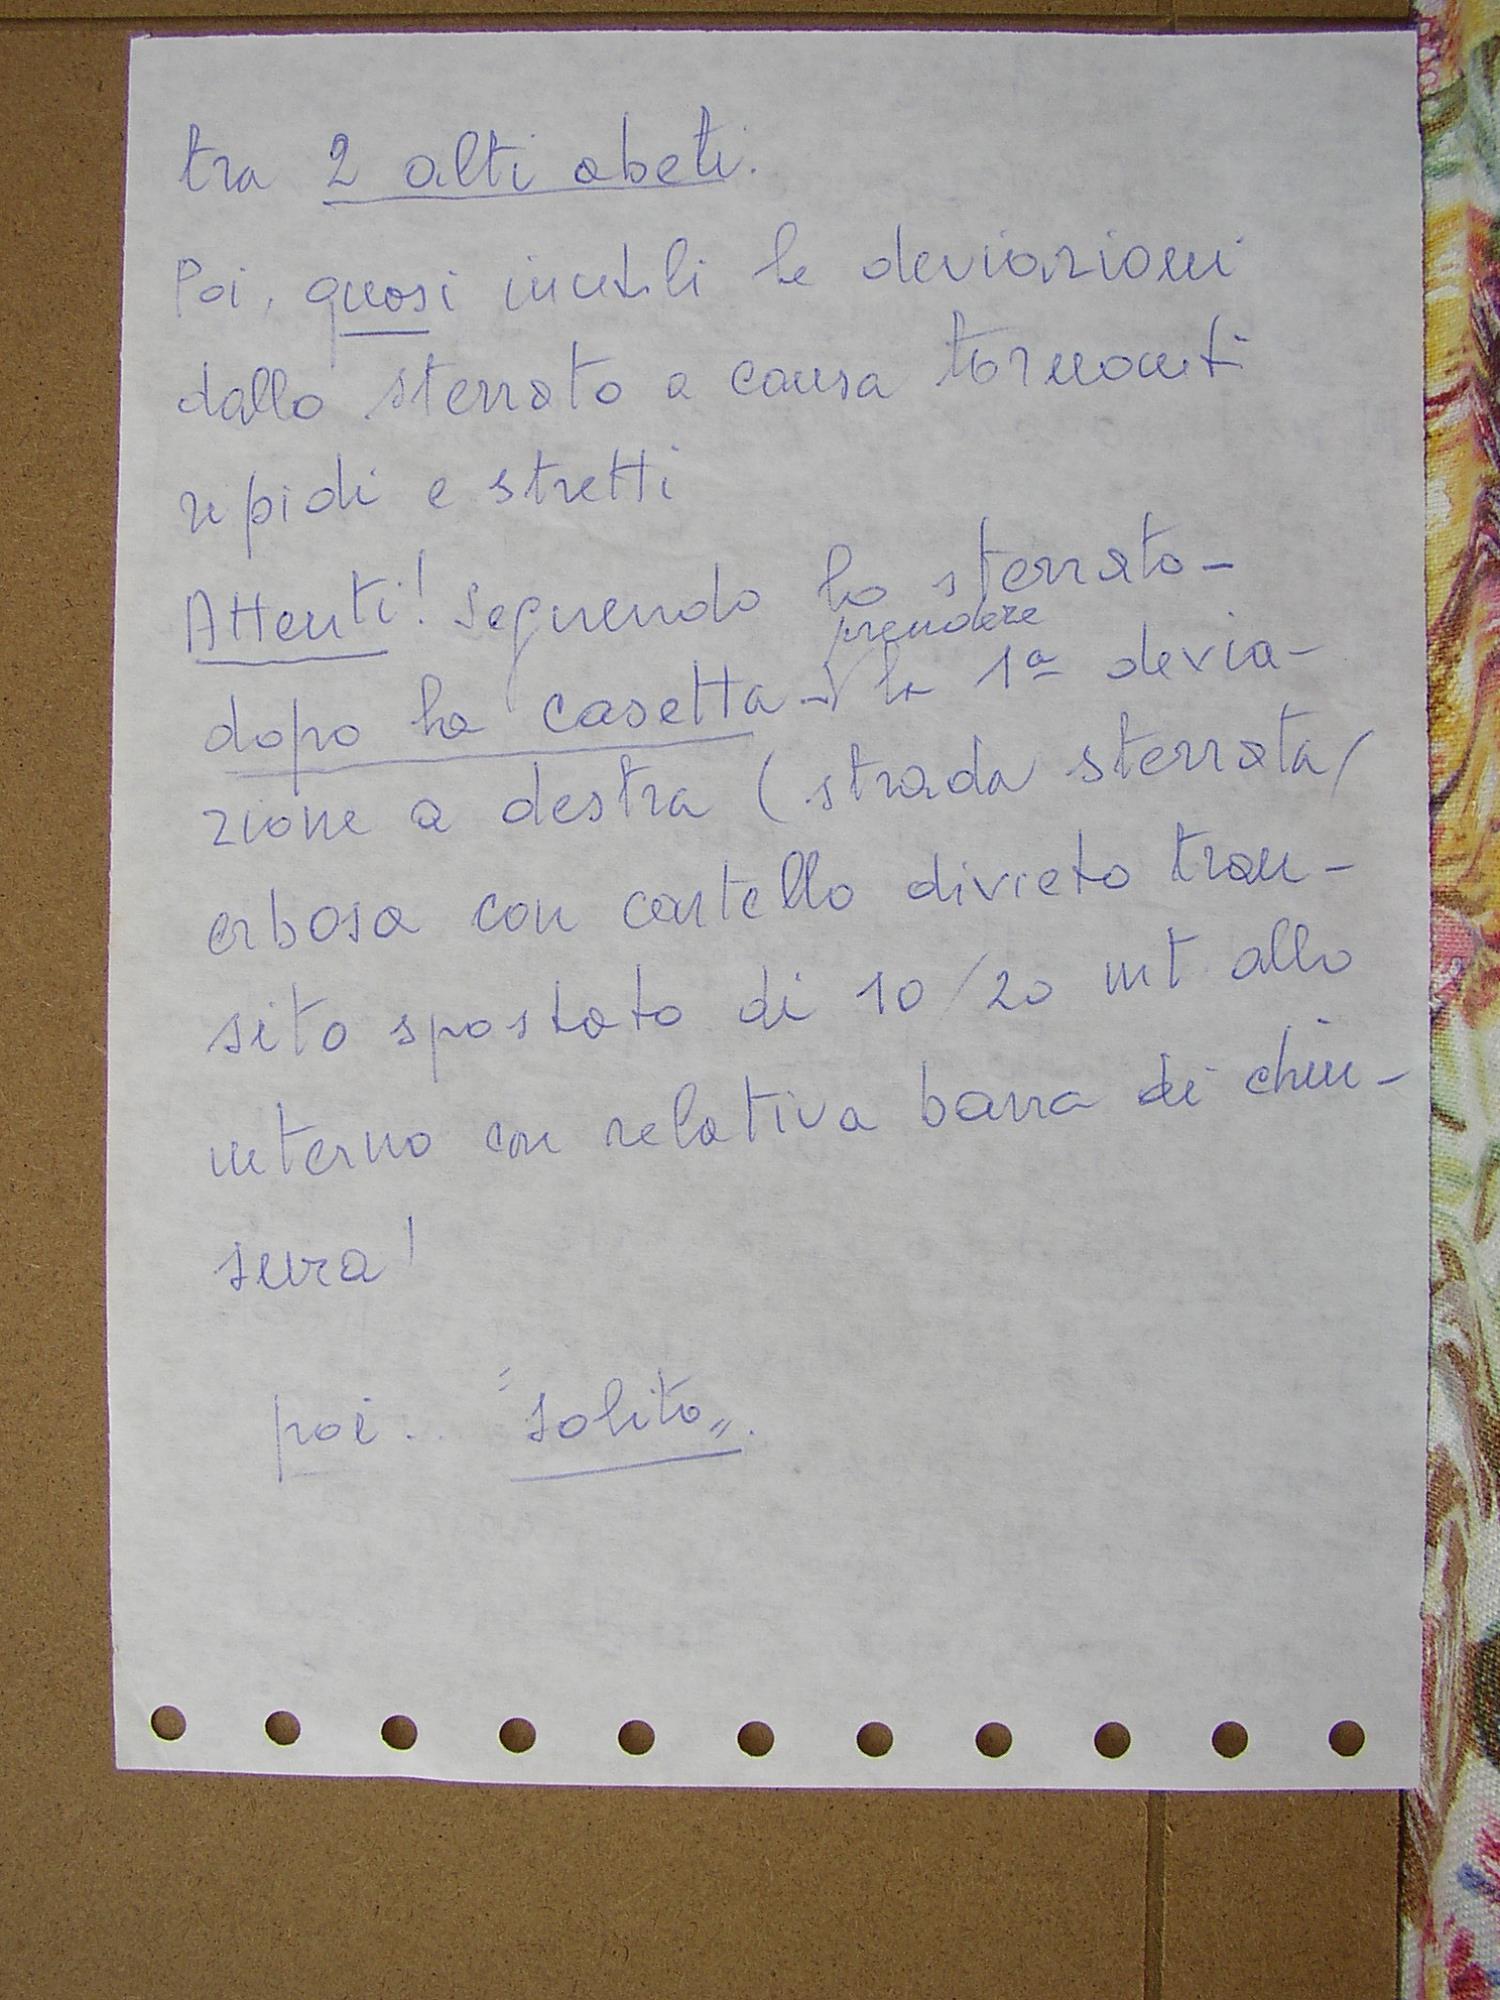 tra 2 alti abeti.
Poi, quasi inutili le deviazioni
dallo sterrato a causa tornanti
repidi e stretti
Attenti! Seguendo lo sterrato -
prendere
dopo la casetta - la 1ª devia-
zione a destra (strada sterrata/
erbosa con cartello divieto tran-
sito spostato di 10/20 mt allo
interno con relativa barra di chiu-
sura!
poi.. "solito".